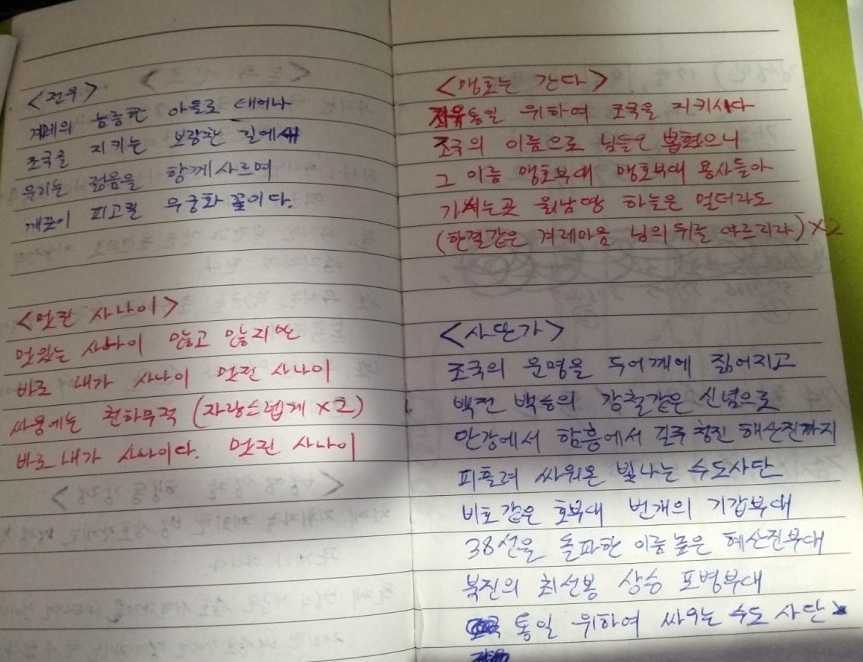 <전우>
겨레의 늠름한 아들로 태어나
조국을 지키는 보람찬 길에서
우리는 젊음을 함께 사르며
깨끗이 피고질 무궁화 꽃이다.
<멋진 사나이>
멋있는 사나이 많고 많지만
바로 내가 사나이 멋진 사나이
싸움에는 천하무적 (자랑스럽게 X2)
바로 내가 사나이다. 멋진 사나이
<맹호는 간다>
자유통일 위하여 조국을 지키시다
조국의 이름으로 님들은 뽑혔으니
그 이름 맹호부대 맹호부대 용사들아
가시는곳 월남땅 하늘은 멀더라도
(한결같은 겨레마음 님의 뒤를 따르리라) X2
<사단가>
조국의 운명을 두어깨에 짊어지고
백전 백승의 강철같은 신념으로
안강에서 함흥에서 길주 청진 해산진까지
피흘려 싸워온 빛나는 수도사단
비호같은 호부대 번개의 기갑부대
38선을 돌파한 이름 높은 혜산진부대
북진의 최선봉 상승 포병부대
통일 위하여 싸우는 수도 사단